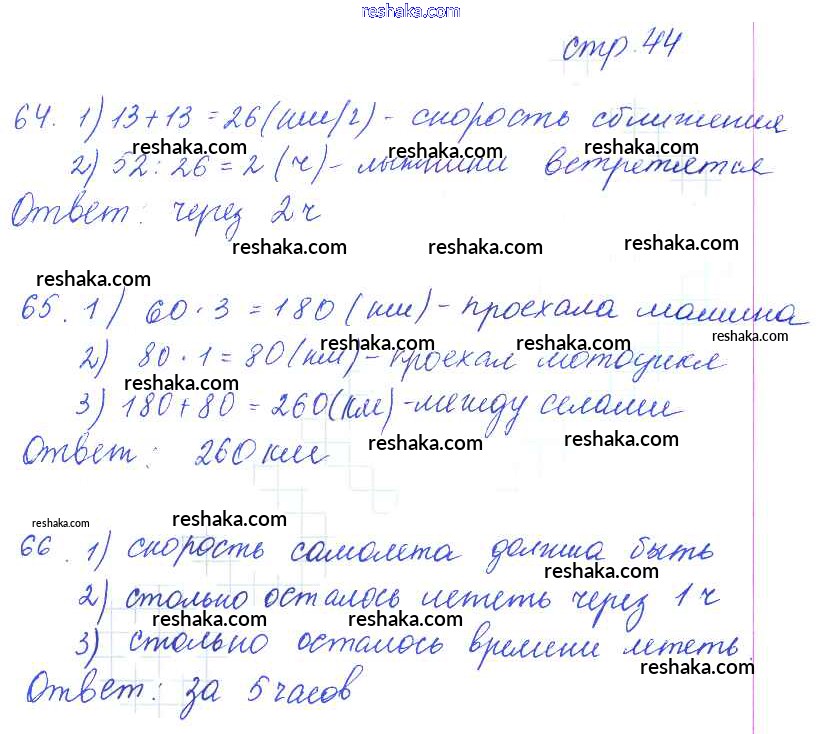 reshaka.com
стр. 44
64. 1) 13+13=26(км/ч) - скорость сближения
reshaka.com reshaka.com reshaka.com
2) 52:26=2 (ч) - лыжники встретятся
Ответ: через 2 ч
reshaka.com reshaka.com reshaka.com
reshaka.com
65. 1) 60·3=180 (км) - проехала машина
reshaka.com reshaka.com reshaka.com
2) 80·1=80(км) - проехал мотоцикл
3) 180+80=260(км) - между селами
reshaka.com reshaka.com
Ответ: 260км
reshaka.com reshaka.com
66. 1) скорость самолета должна быть
reshaka.com
2) столько осталось лететь через 1 ч
reshaka.com reshaka.com reshaka.com
3) столько осталось времени лететь.
reshaka.com
Ответ: за 5 часов